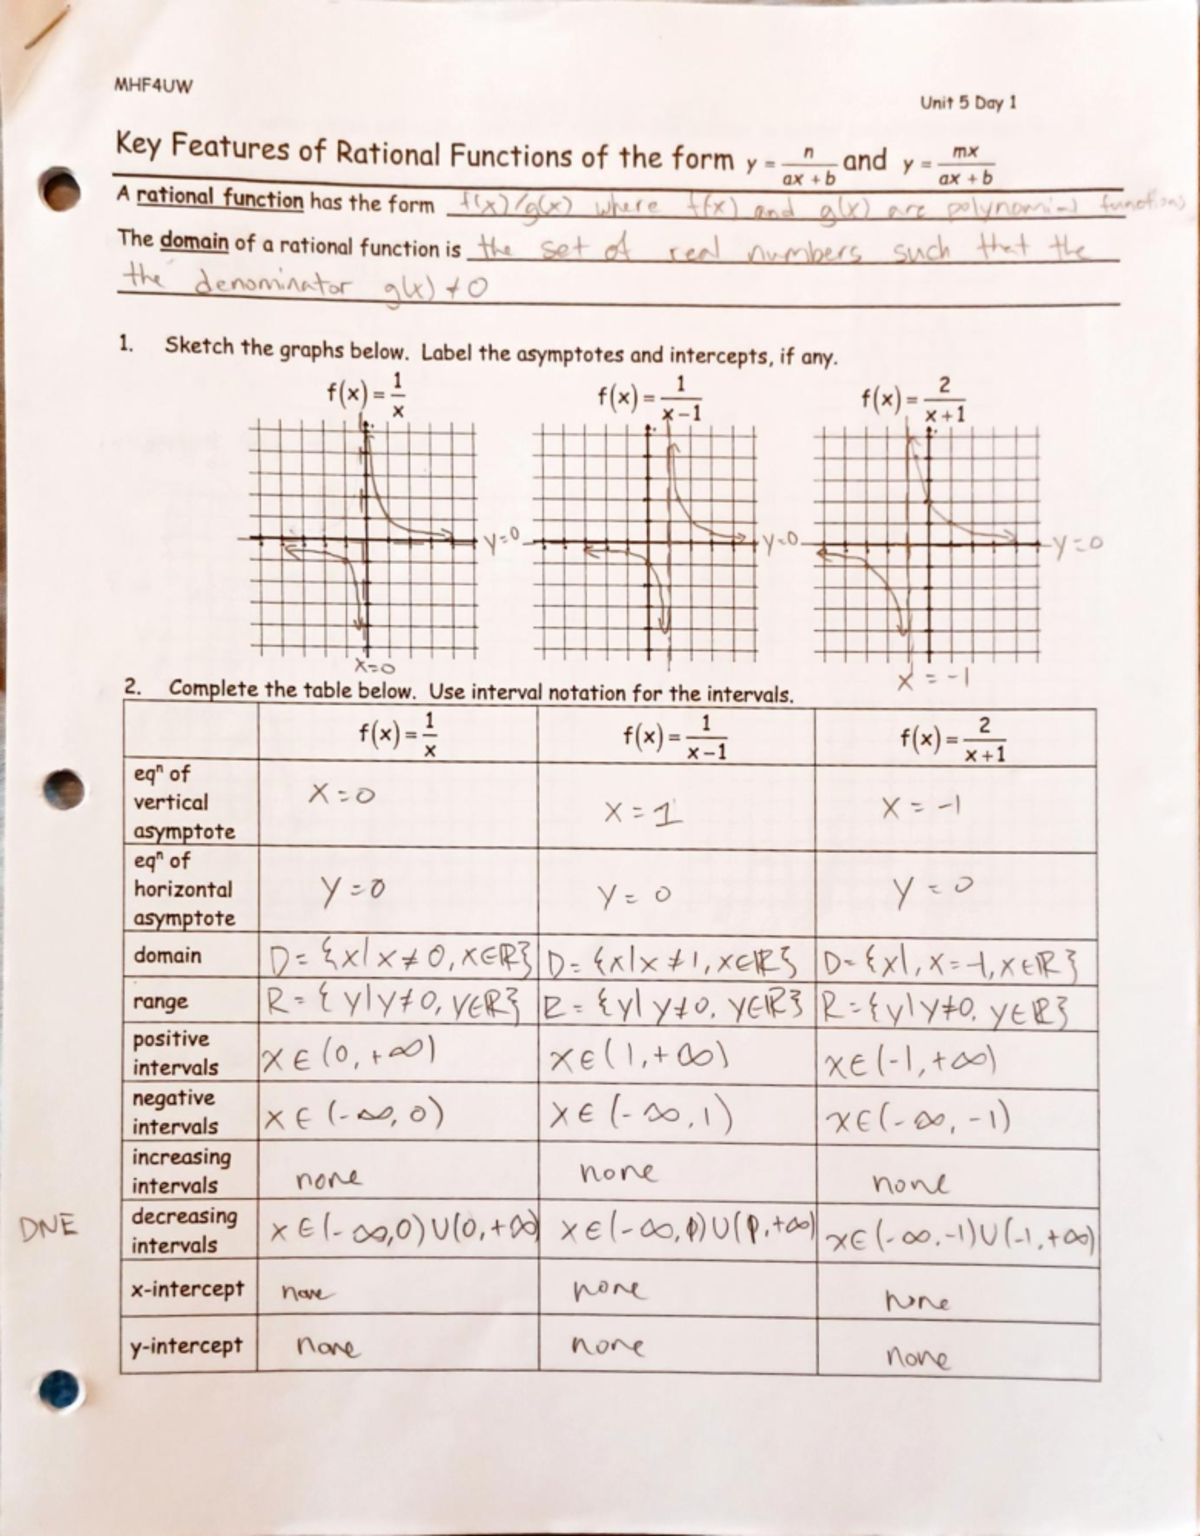 MHF4UW
Unit 5 Day 1
Key Features of Rational Functions of the form y = n/(ax + b) and y = mx/(ax + b)
A rational function has the form f(x)/g(x) where f(x) and g(x) are polynomial functions
The domain of a rational function is the set of real numbers such that the
the denominator g(x) ≠ 0
1. Sketch the graphs below. Label the asymptotes and intercepts, if any.
f(x) = 1/x f(x) = 1/(x-1) f(x) = 2/(x+1)
y=0 y=0 y=0
x=0 x = -1
2. Complete the table below. Use interval notation for the intervals.
f(x) = 1/x f(x) = 1/(x-1) f(x) = 2/(x+1)
eqⁿ of
vertical
asymptote
x=0 x = 1 x = -1
eqⁿ of
horizontal
asymptote
y=0 y = 0 y = 0
domain D = {x| x ≠ 0, x∈ℝ} D = {x|x ≠ 1, x∈ℝ} D = {x|, x = -1, x∈ℝ}
range R = {y|y≠0, y∈ℝ} R = {y| y≠0, y∈ℝ} R = {y|y≠0, y∈ℝ}
positive
intervals
x ∈ (0, +∞) x ∈ (1, +∞) x∈(-1, +∞)
negative
intervals
x ∈ (-∞, 0) x ∈ (-∞, 1) x∈(-∞, -1)
increasing
intervals
none none none
DNE
decreasing
intervals
x ∈ (-∞,0)∪(0,+∞) x∈(-∞,1)∪(1,+∞) x∈(-∞,-1)∪(-1,+∞)
x-intercept none none none
y-intercept none none none